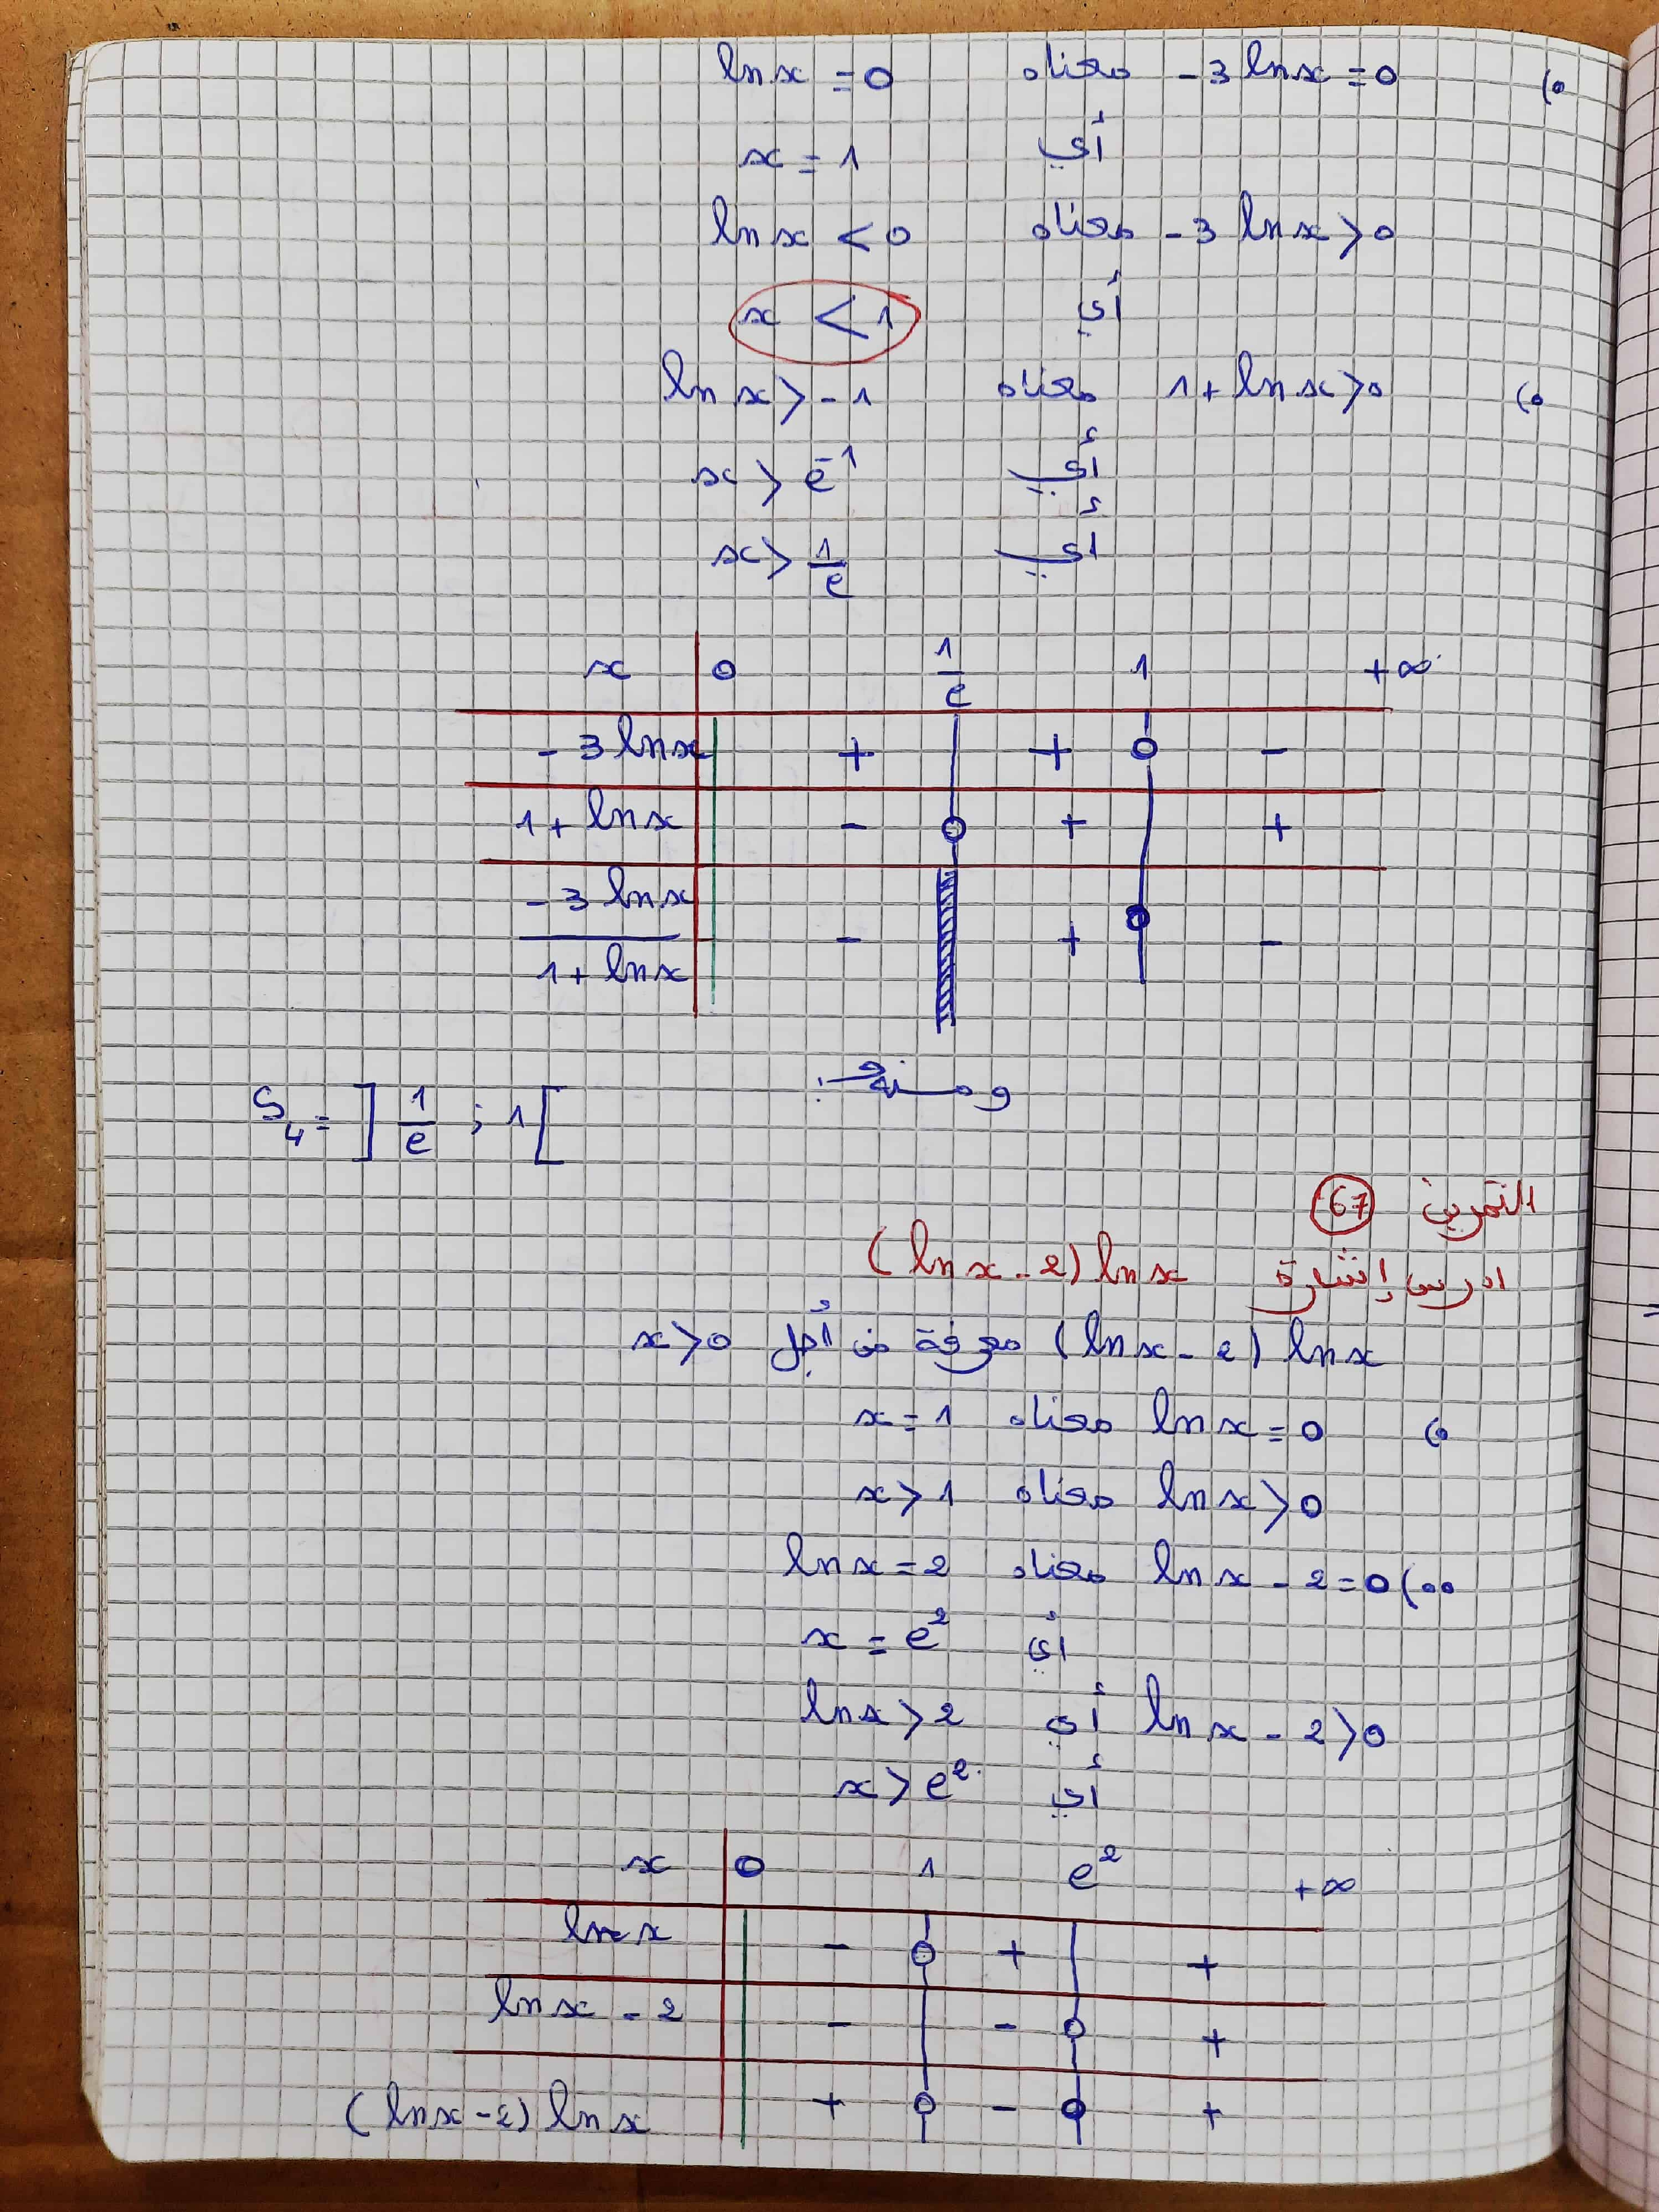 •) -3 ln x = 0 معناه ln x = 0
أي x = 1
-3 ln x > 0 معناه ln x < 0
أي x < 1
•) 1 + ln x > 0 معناه ln x > -1
أي x > e⁻¹
أي x > 1/e
x 0 1/e 1 +∞
-3 ln x + + 0 -
1 + ln x - 0 + +
-3 ln x / 1 + ln x - + 0 -
ومنه:
S₄ = ]1/e ; 1[
التمرين 67
ادرس إشارة (ln x - 2) ln x
(ln x - 2) ln x معرفة من أجل x > 0
•) ln x = 0 معناه x = 1
ln x > 0 معناه x > 1
••) ln x - 2 = 0 معناه ln x = 2
أي x = e²
ln x - 2 > 0 أي ln x > 2
أي x > e²
x 0 1 e² +∞
ln x - 0 + +
ln x - 2 - - 0 +
(ln x - 2) ln x + 0 - 0 +